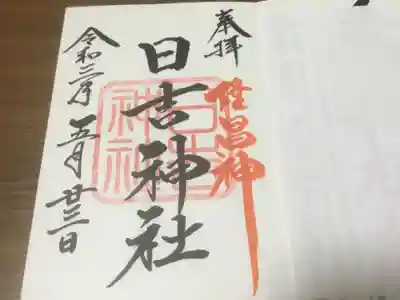 奉拝
昌神
日吉神社
日吉
神社
令和三年五月廿三日